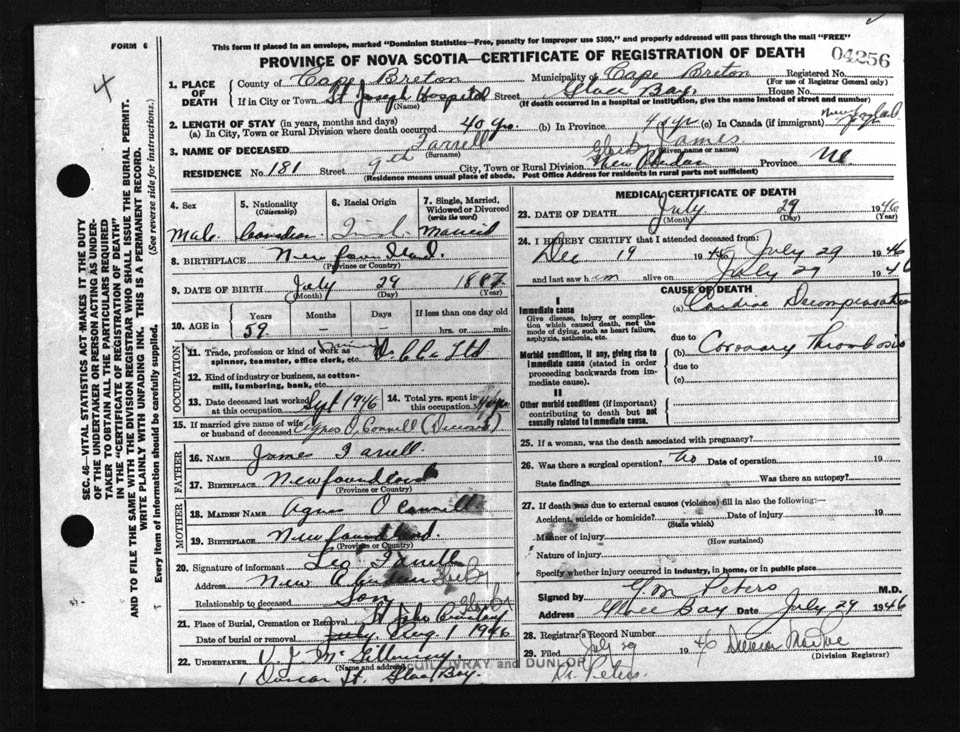 FORM 6
This form if placed in an envelope, marked "Dominion Statistics—Free, penalty for improper use $300," and properly addressed will pass through the mail "FREE"
PROVINCE OF NOVA SCOTIA—CERTIFICATE OF REGISTRATION OF DEATH
04256
1. PLACE OF DEATH
County of Cape Breton Municipality of Cape Breton Registered No.
(For use of Registrar General only)
If in City or Town St Joseph Hospital Street Glace Bay House No.
(Name) (If death occurred in a hospital or institution, give the name instead of street and number)
2. LENGTH OF STAY (in years, months and days)
(a) In City, Town or Rural Division where death occurred 40 yrs. (b) In Province 40 yrs (c) In Canada (if immigrant)
3. NAME OF DECEASED Farrell James
(Surname) (Given name or names)
RESIDENCE No. 181 Street 9th City, Town or Rural Division New Aberdeen Province
(Residence means usual place of abode. Post Office Address for residents in rural parts not sufficient)
SEC. 46—VITAL STATISTICS ACT MAKES IT THE DUTY
OF THE UNDERTAKER OR PERSON ACTING AS UNDER-
TAKER TO OBTAIN ALL THE PARTICULARS REQUIRED
IN THE "CERTIFICATE OF REGISTRATION OF DEATH"
AND TO FILE THE SAME WITH THE DIVISION REGISTRAR WHO SHALL ISSUE THE BURIAL PERMIT.
WRITE PLAINLY WITH UNFADING INK. THIS IS A PERMANENT RECORD.
Every item of information should be carefully supplied. (See reverse side for instructions.)
4. Sex Male
5. Nationality (Citizenship) Canadian
6. Racial Origin Irish
7. Single, Married, Widowed or Divorced (write the word) Married
8. BIRTHPLACE Newfoundland
(Province or Country)
9. DATE OF BIRTH July 29 1887
(Month) (Day) (Year)
10. AGE in Years Months Days If less than one day
59 — — hrs. or min.
OCCUPATION
11. Trade, profession or kind of work as
spinner, teamster, office clerk, etc.
12. Kind of industry or business, as cotton-
mill, lumbering, bank, etc.
13. Date deceased last worked at this occupation Sept 1946
14. Total yrs. spent in this occupation 40 yrs
15. If married give name of wife or husband of deceased Agnes O'Connell (Deceased)
FATHER
16. NAME James Farrell
17. BIRTHPLACE Newfoundland
(Province or Country)
MOTHER
18. MAIDEN NAME Agnes O'Connell
19. BIRTHPLACE Newfoundland
(Province or Country)
20. Signature of informant Leo Farrell
Address New Aberdeen
Relationship to deceased Son
21. Place of Burial, Cremation or Removal St John Cemetery
Date of burial or removal July Aug 1 1946
22. UNDERTAKER V. J. McGillivray
(Name and address) McGILLIVRAY and DUNLOP
St. Glace Bay.
MEDICAL CERTIFICATE OF DEATH
23. DATE OF DEATH July 29 1946
(Month) (Day) (Year)
24. I HEREBY CERTIFY that I attended deceased from:
Dec 19 1946 to July 29 1946
and last saw him alive on July 29 1946
CAUSE OF DEATH
I
Immediate cause (a) Cardiac Decompensation
Give disease, injury or complica-
tion which caused death, not the
mode of dying, such as heart failure,
asphyxia, asthenia, etc.
due to
Morbid conditions, if any, giving rise to (b) Coronary Thrombosis
immediate cause (stated in order due to
proceeding backwards from im- (c)
mediate cause).
II
Other morbid conditions (if important)
contributing to death but not
causally related to immediate cause.
25. If a woman, was the death associated with pregnancy?
26. Was there a surgical operation? No Date of operation 19
State findings Was there an autopsy?
27. If death was due to external causes (violence) fill in also the following:—
Accident, suicide or homicide? Date of injury 19
(State which)
Manner of injury
(How sustained)
Nature of injury
Specify whether injury occurred in industry, in home, or in public place
Signed by G. M. Peters M.D.
Address Glace Bay Date July 29 1946
28. Registrar's Record Number
29. Filed July 29 1946
(Division Registrar)
Dr. Peters.